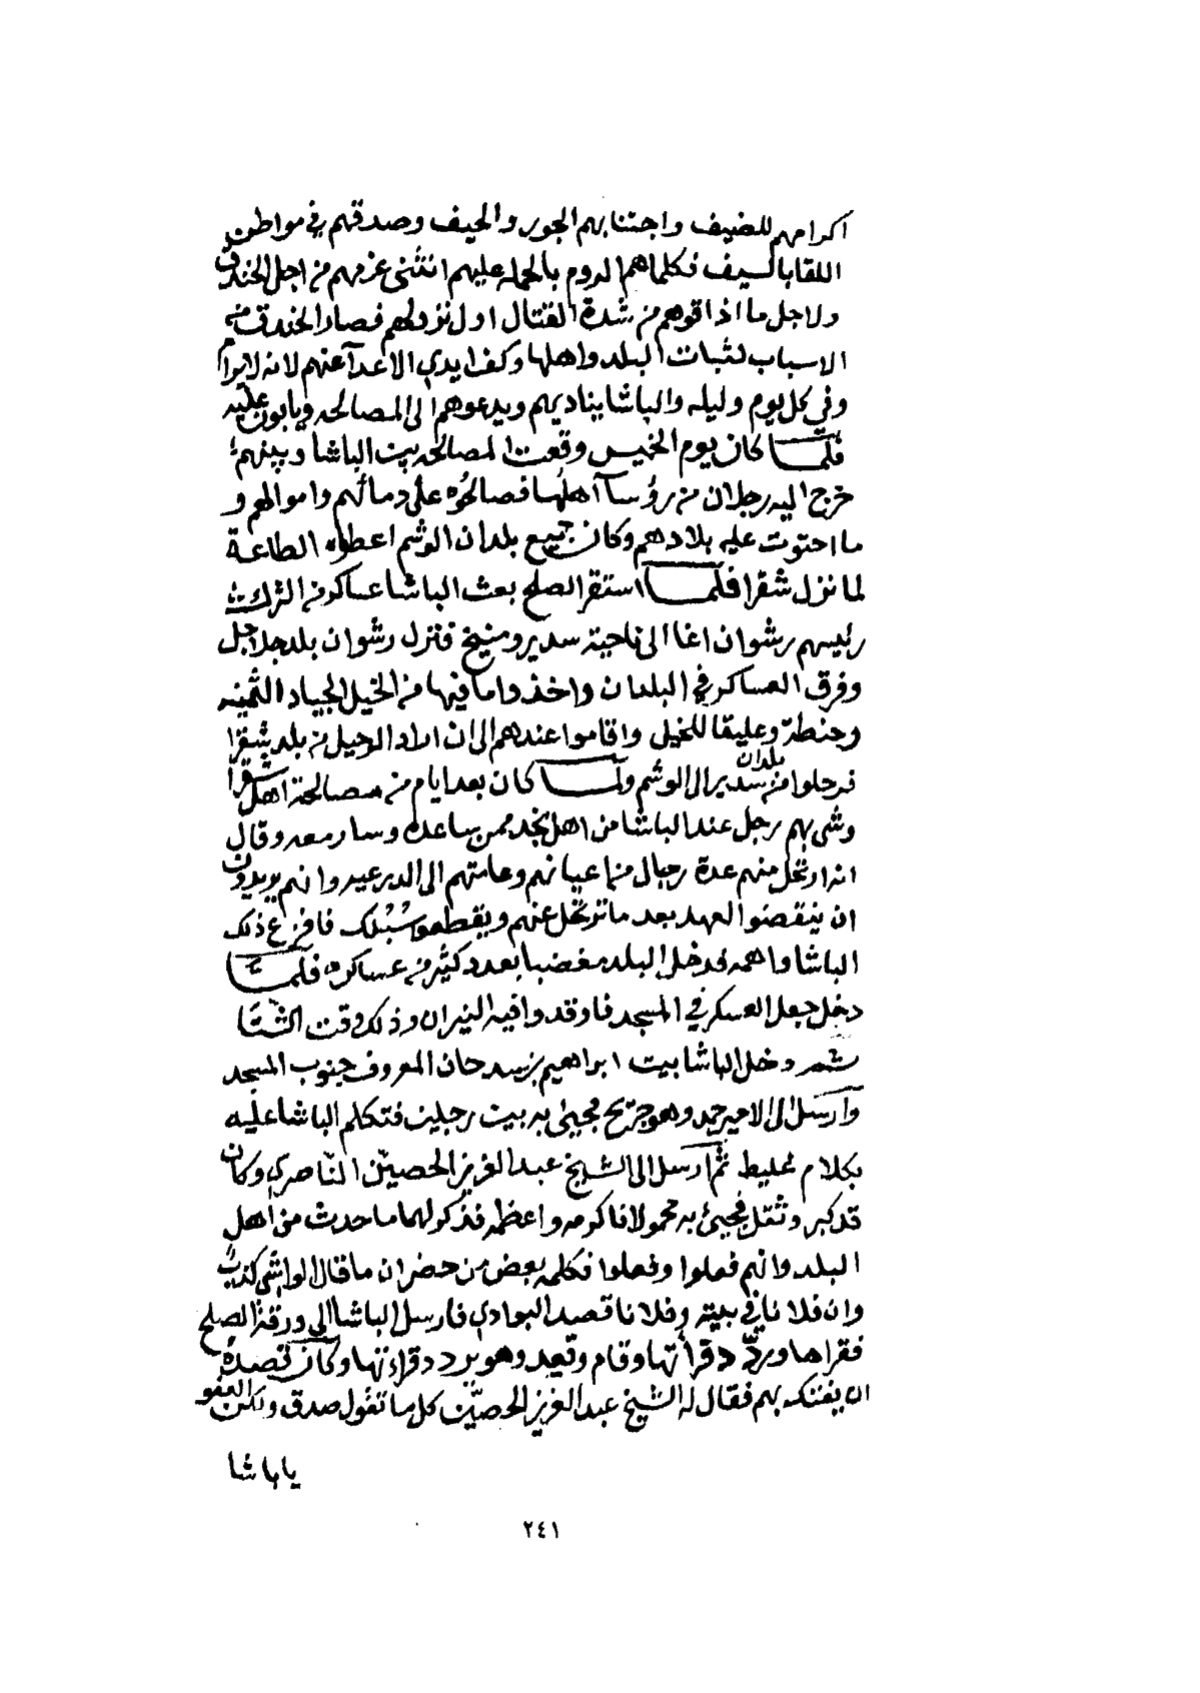 اكرامهم للضيف واجتنابهم الجور والحيف وصدقهم في مواطن
اللقا بالسيف فكلما هم الروم بالحمله عليهم انثنى عزمهم من اجل الخندق
ولاجل ما اذاقوهم من شدة القتال اول نزولهم فصار الخندق من
الاسباب لثبات البلد واهلها وكف ايدي الاعدآ عنهم لانه لايرام
وفي كل يوم وليله والباشا يناديهم ويدعوهم الى المصالحه ويابون عليه
فلمّـا كان يوم الخميس وقعت المصالحه بين الباشا وبينهم
خرج اليه رجلان من رؤسآ اهلها فصالحوه على دمائهم واموالهم و
ما احتوت عليه بلادهم وكان جميع بلدان الوشم اعطوه الطاعة
لما نزل شقرا فلمـا استقر الصلح بعث الباشا عساكر من الترك
رئيسهم رشوان اغا الى ناحية سدير ومنيخ فنزل رشوان بلد جلاجل
وفرق العساكر في البلدان واخذوا ما فيها من الخيل الجياد الثمينه
وحنطة وعليقا للخيل واقاموا عندهم الى ان اراد الرحيل من بلد شقرا
فرحلوا من بلدان سدير الى الوشم ولمـا كان بعد ايام من مصالحة اهل شقرا
وشى بهم رجل عند الباشا من اهل نجد ممن ساعده وسار معه وقال
انه ارتحل منهم عدة رجال من اعيانهم وعامتهم الى الدرعيه وانهم يريدون
ان ينقضوا العهد بعد ما ترتحل عنهم ويقطعوا سُبُلك فافزع ذلك
الباشا واهمه فدخل البلد مغضبا بعدد كثير من عساكره فلمّـا
دخل جعل العسكر في المسجد فاوقدوا فيه النيران وذلك وقت الشتَا
ثم دخل الباشا بيت ابراهيم بن سدحان المعروف جنوب المسجد
وارسل الى الامير حمد وهو جريح فجيئ به بين رجلين فتكلم الباشا عليه
بكلام غليظ ثم ارسل الى الشيخ عبد العزيز الحصيّن الناصري وكان
قد كبر وثقل فجيئ به محمولا فاكرمه واعظمه فذكر لهما ما حدث من اهل
البلد وانهم فعلوا وفعلوا فكلمه بعض من حضر ان ما قال الواشي كذب
وان فلانا في بيته وفلانا قصد البوادي فارسل الباشا الى ورقة الصلح
فقراها وردّد قرأتها وقام وقعد وهو يردد قراءتها وكان قصده
ان يفتك بهم فقال له الشيخ عبد العزيز الحصيّن كل ما تقول صدق ولكن العفو
يا باشا
٢٤١